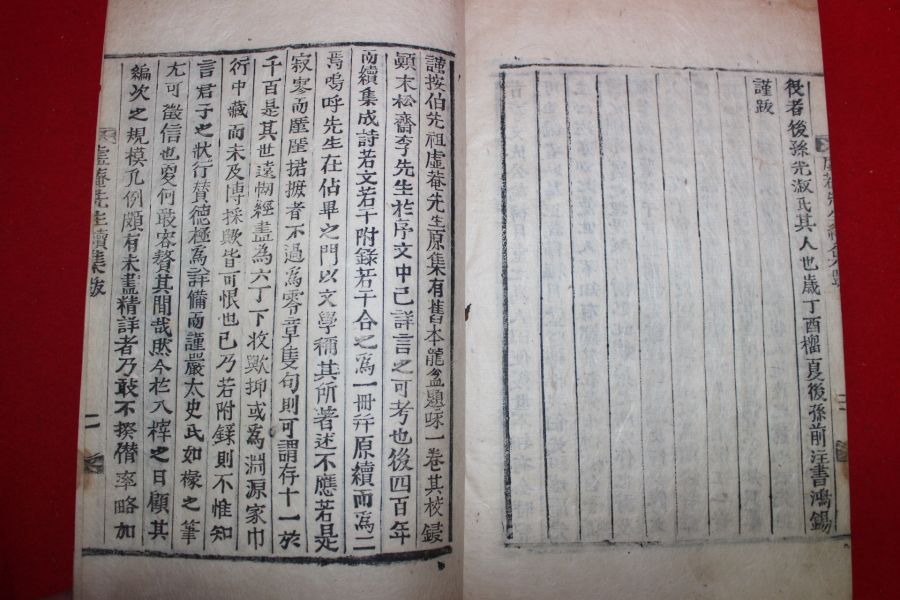 後者後孫光淑氏其人也歲丁酉榴夏後孫前注書鴻錫
謹跋
謹按伯先祖虛菴先生原集有舊本龍盆題咏一卷其校鋟
顚末松齋李先生於序文中已詳言之可考也後四百年
而續集成詩若文若干附錄若干合之爲一冊幷原續而爲二
焉嗚呼先生在佔畢之門以文學稱其所著述不應若是
寂寥而捃摭者不過爲零章隻句則可謂存十一於
千百是其世遠刼經盡為六丁下收歟抑或為淵源家巾
衍中藏而未及博採歟皆可恨也已乃若附錄則不惟知
言君子之狀行贊德極爲詳備而謹嚴太史氏如椽之筆
尤可徵信也何敢容贅其間哉然今於入梓之日顧其
編次之規模凡例頗有未盡精詳者乃敢不揆僭率略加
虛菴先生續集跋 二